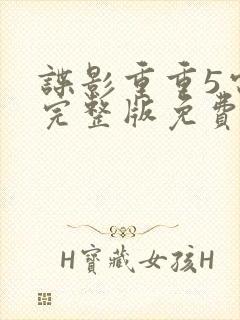 諜影重重5
完整版免費
H寶藏女孩H